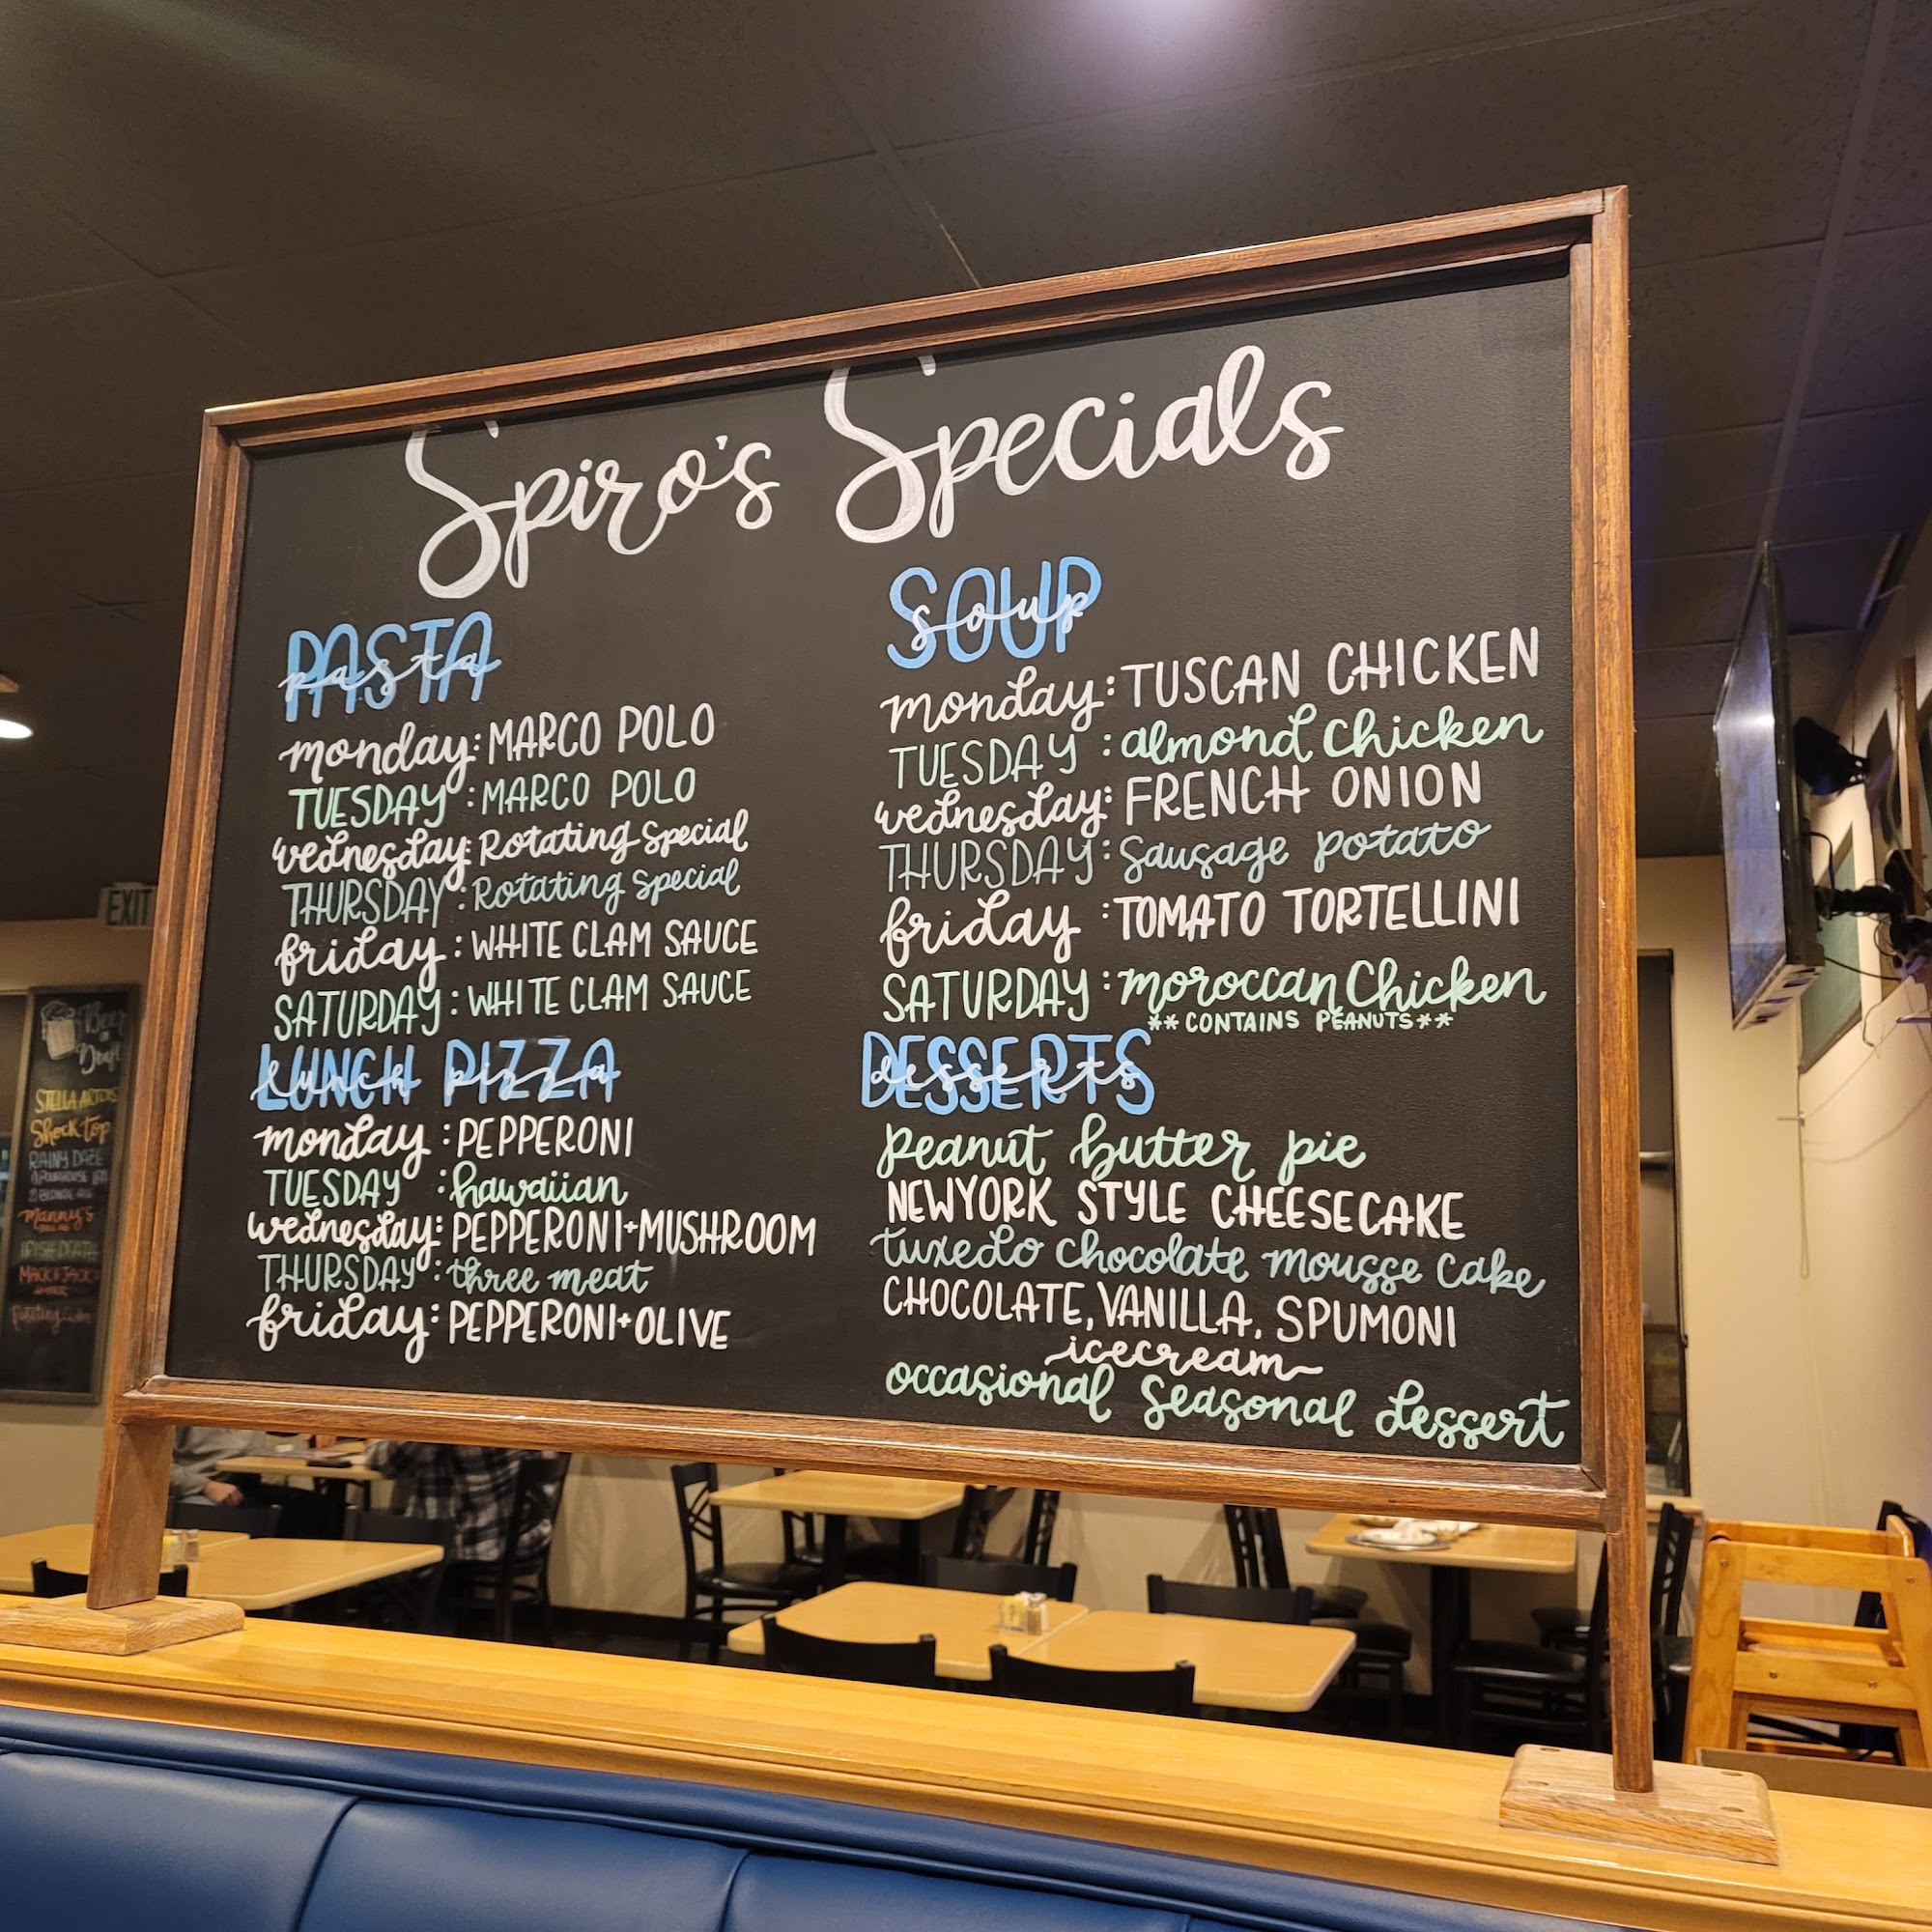 Spiro's Specials
PASTA
pasta
monday: MARCO POLO
TUESDAY: MARCO POLO
wednesday: Rotating Special
THURSDAY: Rotating Special
friday: WHITE CLAM SAUCE
SATURDAY: WHITE CLAM SAUCE
LUNCH PIZZA
lunch pizza
monday: PEPPERONI
TUESDAY: hawaiian
wednesday: PEPPERONI+MUSHROOM
THURSDAY: three meat
friday: PEPPERONI+OLIVE
SOUP
soup
monday: TUSCAN CHICKEN
TUESDAY: almond chicken
wednesday: FRENCH ONION
THURSDAY: Sausage potato
friday: TOMATO TORTELLINI
SATURDAY: moroccan Chicken
**CONTAINS PEANUTS**
DESSERTS
desserts
peanut butter pie
NEWYORK STYLE CHEESECAKE
tuxedo chocolate mousse cake
CHOCOLATE, VANILLA, SPUMONI
~icecream~
occasional seasonal dessert
EXIT
Beer
Draft
STELLA ARTOIS
Shock top
RAINY DAZE
Manny's
IRISH DEATH
MACK & JACK'S